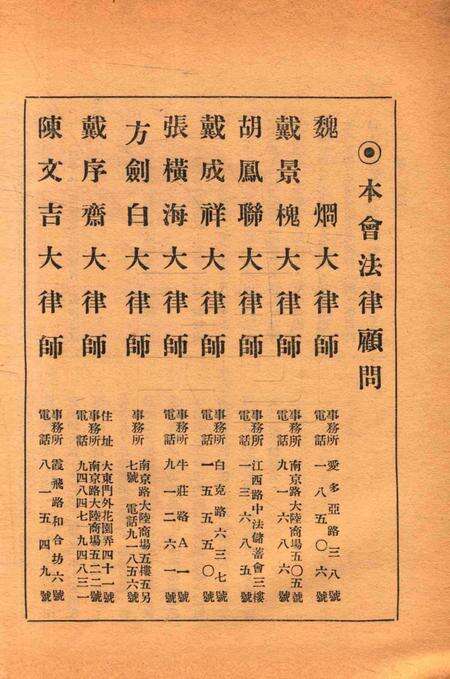 ◉本會法律顧問
魏烱大律師
事務所 愛多亞路三八號
電話 一八五〇六號
戴景槐大律師
事務所 南京路大陸商場五〇五號
電話 九一六八六號
胡鳳聯大律師
事務所 江西路中法儲蓄會三樓
電話 一三六八五號
戴成祥大律師
事務所 白克路六三七號
電話 一五五五〇號
張橫海大律師
事務所 牛莊路A一號
電話 九一二六一號
方劍白大律師
事務所 南京路大陸商場五樓五另七號 電話九一八五六號
戴序齋大律師
住址 大東門外花園弄四十一號
事務所 南京路大陸商場五二二號
電話 九四八四七 九四八三一號
陳文吉大律師
事務所 霞飛路和合坊六號
電話 八一五四九號